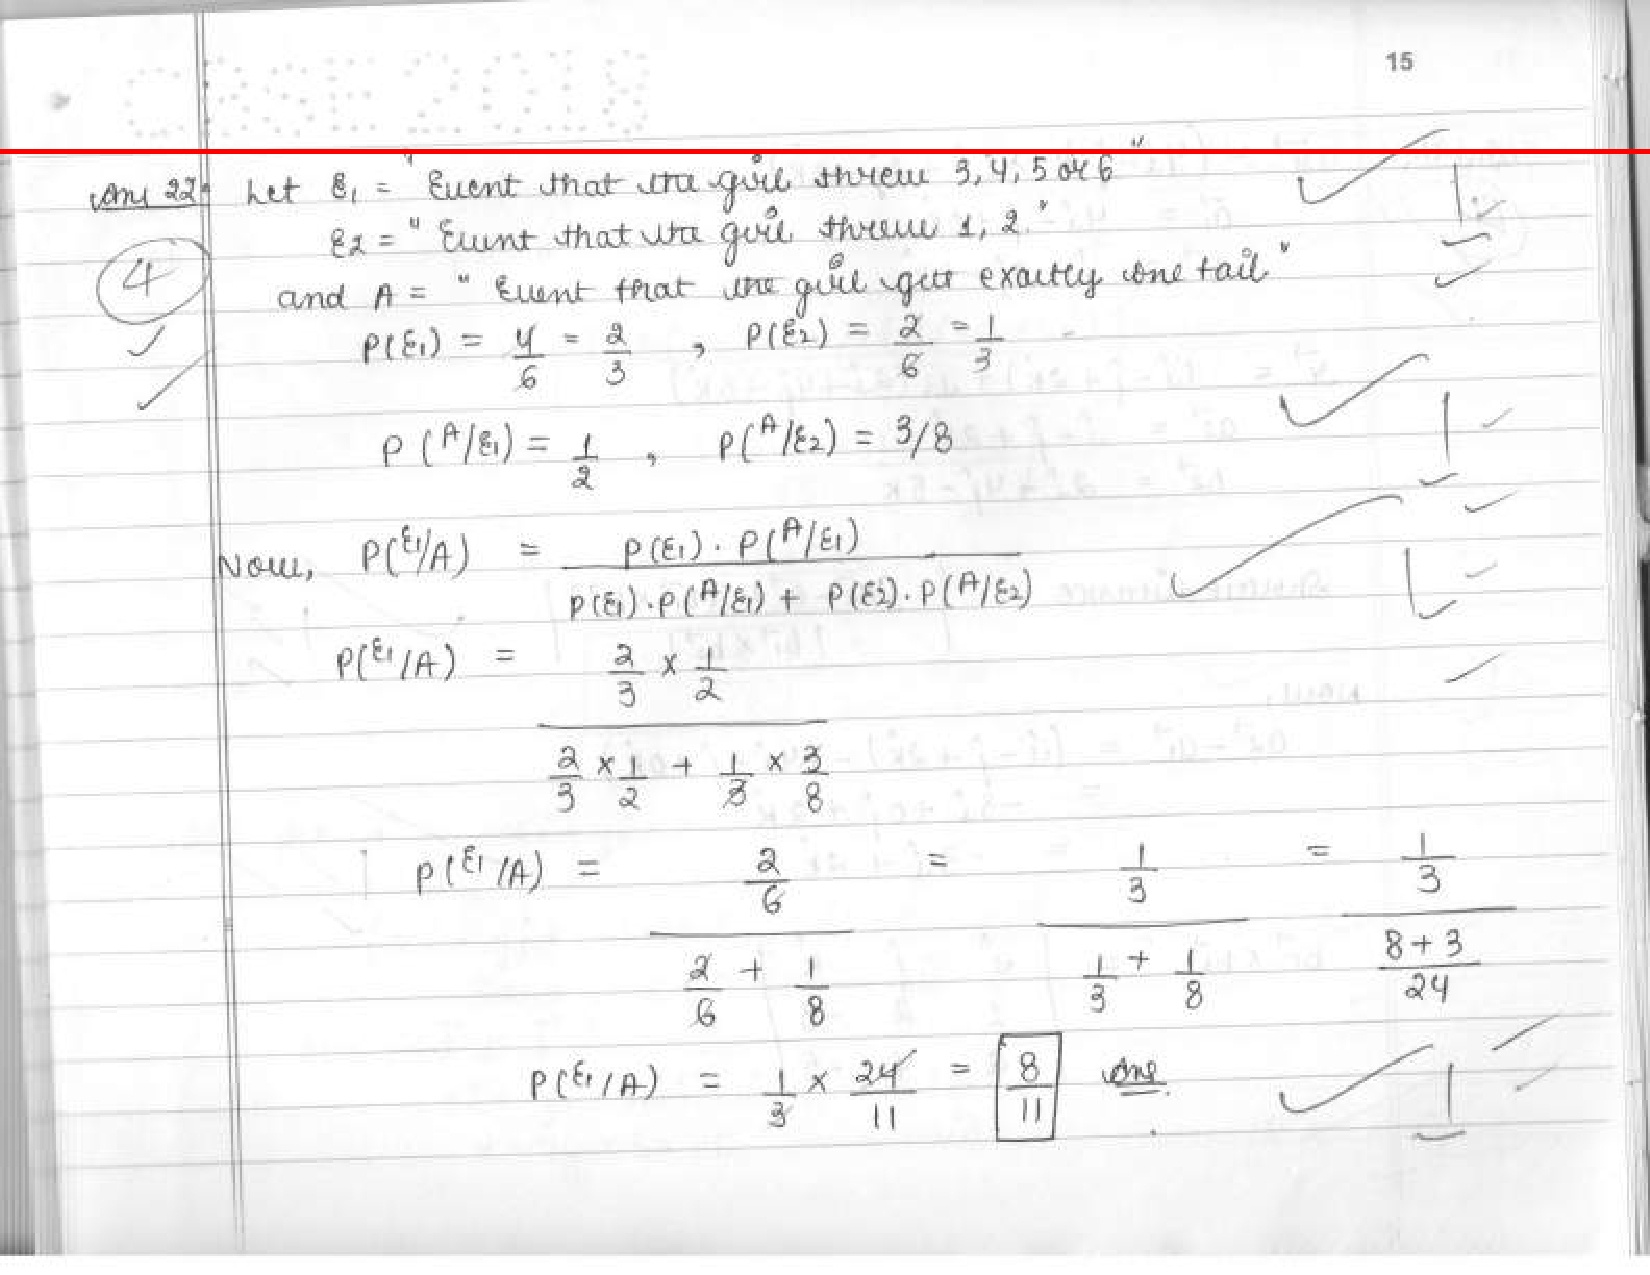 CBSE 2018
15
Ans 22: Let E1 = "Event that the girl threw 3, 4, 5 or 6"
E2 = "Event that the girl threw 1, 2."
④ and A = "Event that the girl get exactly one tail"
P(E1) = 4/6 = 2/3 , P(E2) = 2/6 = 1/3
P(A/E1) = 1/2 , P(A/E2) = 3/8
Now, P(E1/A) = P(E1) . P(A/E1) / P(E1) . P(A/E1) + P(E2) . P(A/E2)
P(E1/A) = 2/3 × 1/2 / 2/3 × 1/2 + 1/3 × 3/8
P(E1/A) = 2/6 / 2/6 + 1/8 = 1/3 / 1/3 + 1/8 = 1/3 / 8+3/24
P(E1/A) = 1/3 × 24/11 = 8/11 Ans